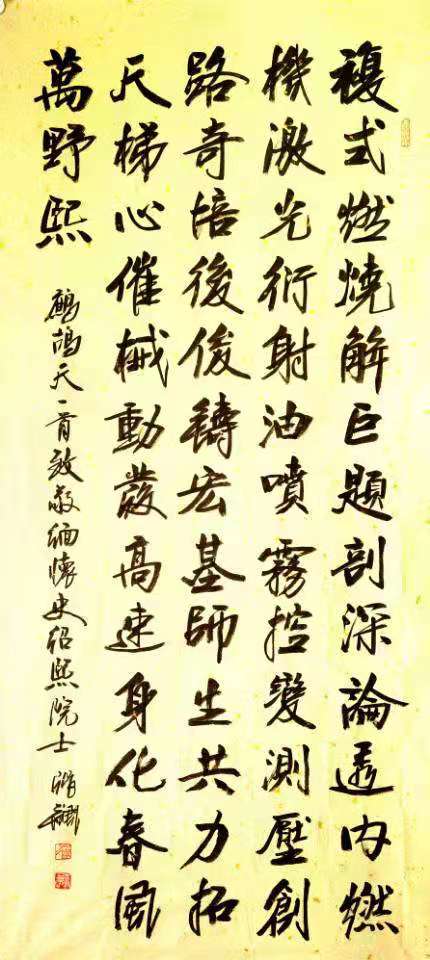 複式燃燒解巨題剖深論透内燃
機激光衍射油噴霧控變測壓創
路奇培後俊鑄宏基師生共力拓
天梯心催械動蕟高速身化春風
萬野熙
鷓鴣天一首致敬緬懷史紹熙院士